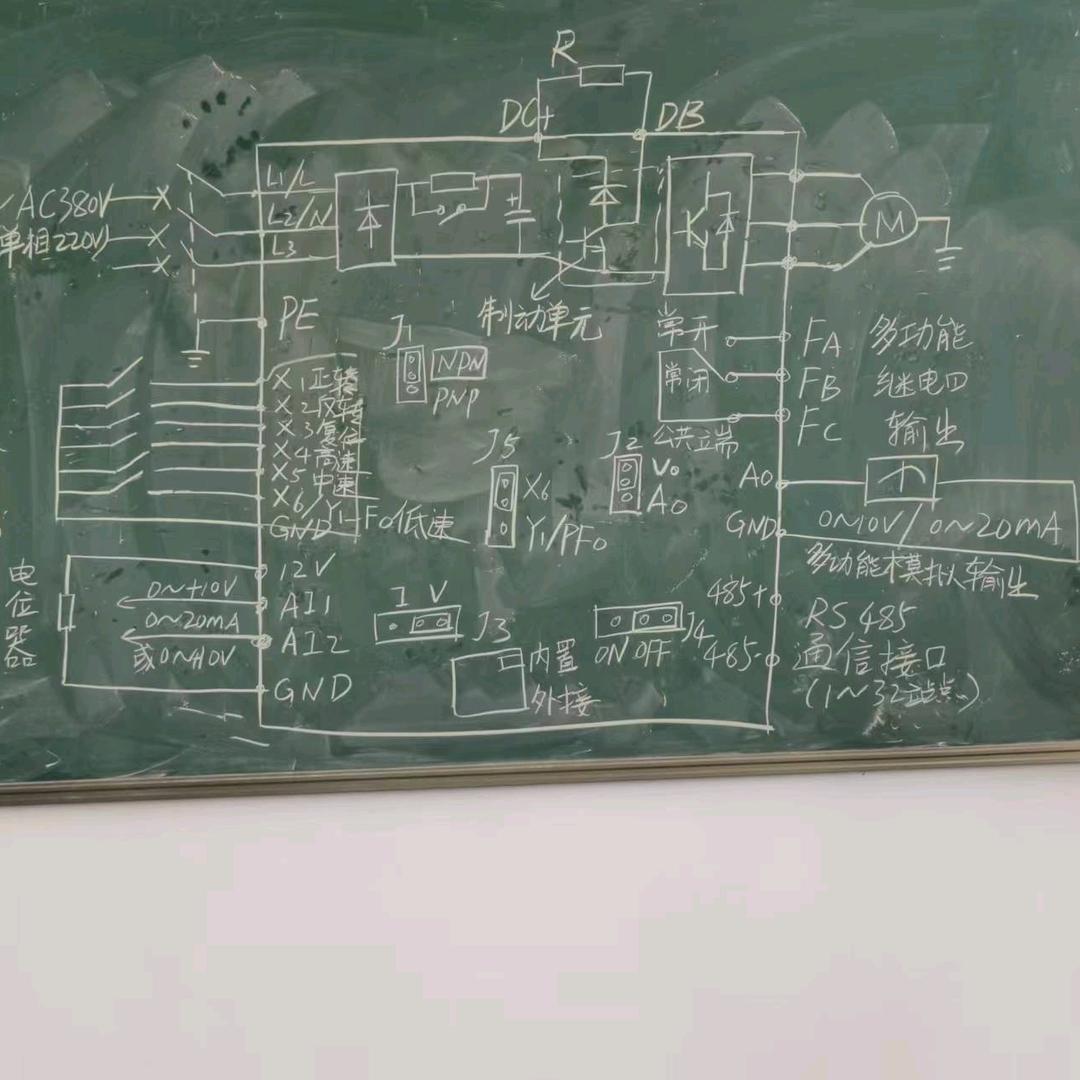 R
DC+ DB
AC380V
单相220V
L1/L
L2/N
L3
M
PE
制动单元
J1
NPN
PNP
X1正转
X2反转
X3复位
X4高速
X5中速
X6/Y1-F0低速
GND
J5
X6
Y1/PF0
J2
V0
A0
常开
常闭
公共端
FA 多功能
FB 继电口
FC 输出
A0
GND
0~10V/0~20mA
多功能模拟输出
电位器
12V
0~+10V
AI1
0~20mA
或0~+10V
AI2
GND
I V
J3
内置
外接
J4
ON OFF
485+
485-
RS485
通信接口
(1~32站点)